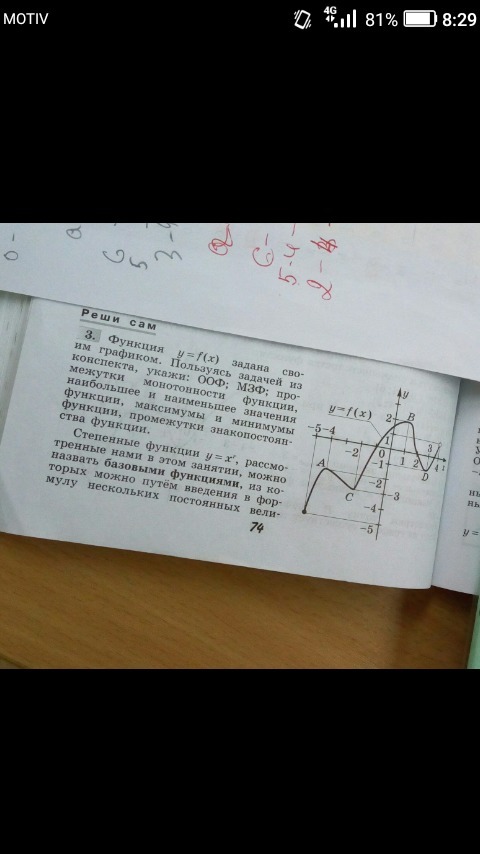 MOTIV
4G 81% 8:29
0 -
a
6 -
5
3 - 4
a
6 -
5 - 4 -
2 - 4 -
Реши сам
3. Функция y = f(x) задана сво-
им графиком. Пользуясь задачей из
конспекта, укажи: ООФ; МЗФ; про-
межутки монотонности функции,
наибольшее и наименьшее значения
функции, максимумы и минимумы
функции, промежутки знакопостоян-
ства функции.
y = f(x)
y
2
B
-5 -4
-2
0
1
-1
1 2
3
4
A
C
-2
D
3
-4
-5
Степенные функции y = xʳ, рассмо-
тренные нами в этом занятии, можно
назвать базовыми функциями, из ко-
торых можно путём введения в фор-
мулу нескольких постоянных вели-
74
y =